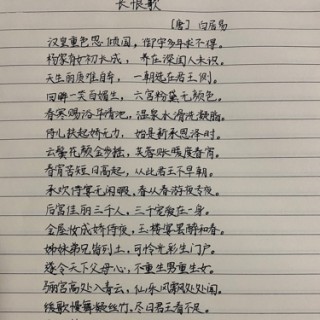 长恨歌
[唐] 白居易
汉皇重色思倾国，御宇多年求不得。
杨家有女初长成，养在深闺人未识。
天生丽质难自弃，一朝选在君王侧。
回眸一笑百媚生，六宫粉黛无颜色。
春寒赐浴华清池，温泉水滑洗凝脂。
侍儿扶起娇无力，始是新承恩泽时。
云鬓花颜金步摇，芙蓉帐暖度春宵。
春宵苦短日高起，从此君王不早朝。
承欢侍宴无闲暇，春从春游夜专夜。
后宫佳丽三千人，三千宠爱在一身。
金屋妆成娇侍夜，玉楼宴罢醉和春。
姊妹弟兄皆列土，可怜光彩生门户。
遂令天下父母心，不重生男重生女。
骊宫高处入青云，仙乐风飘处处闻。
缓歌慢舞凝丝竹，尽日君王看不足。